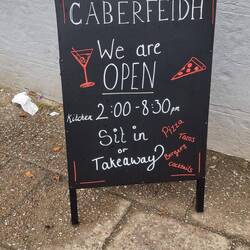 CABERFEIDH
We are
OPEN
Kitchen 2:00-8:30pm
Sit in
or
Takeaway?
Pizza
Tacos
Burgers
Cocktails